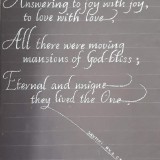 Answering to joy with joy,
to love with love.
All there were moving
mansions of God-bliss;
Eternal and unique
they lived the One.